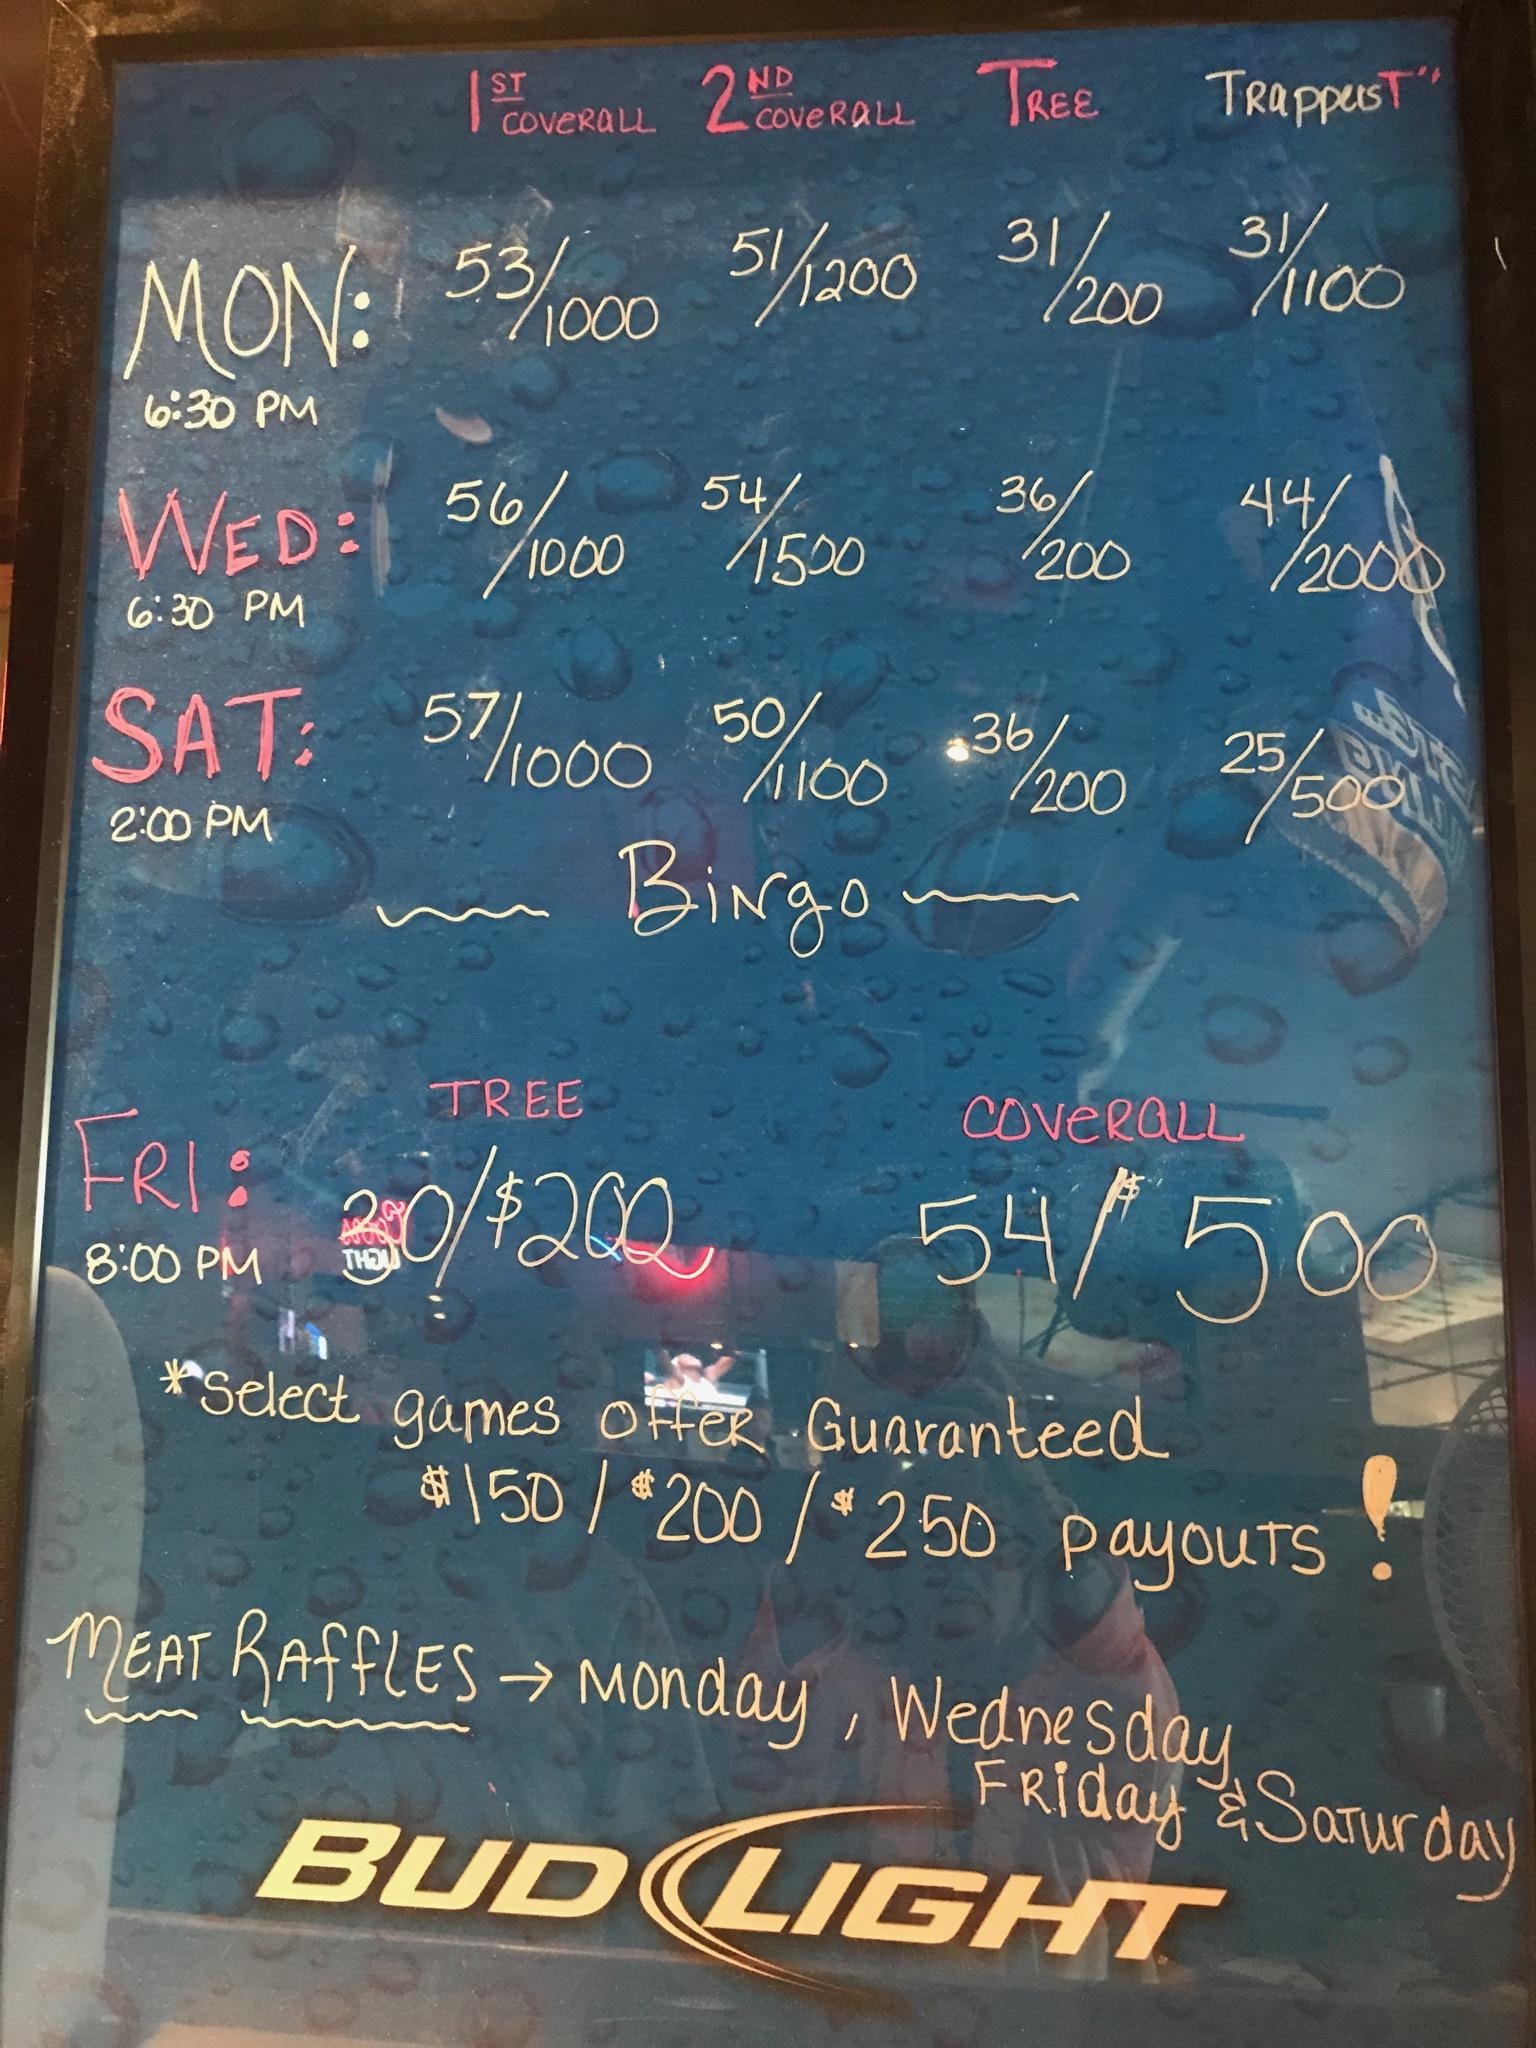 1ST COVERALL 2ND COVERALL TREE Trappers T"
MON: 53/1000 51/1200 31/200 31/1100
6:30 PM
WED: 56/1000 54/1500 36/200 44/2000
6:30 PM
SAT: 57/1000 50/1100 36/200 25/500
2:00 PM
Bingo
TREE COVERALL
FRI: 30/$200 54/$500
8:00 PM
*Select games offer Guaranteed
$150/$200/$250 payouts!
MEAT RAffLES → Monday, Wednesday
Friday & Saturday
BUD LIGHT